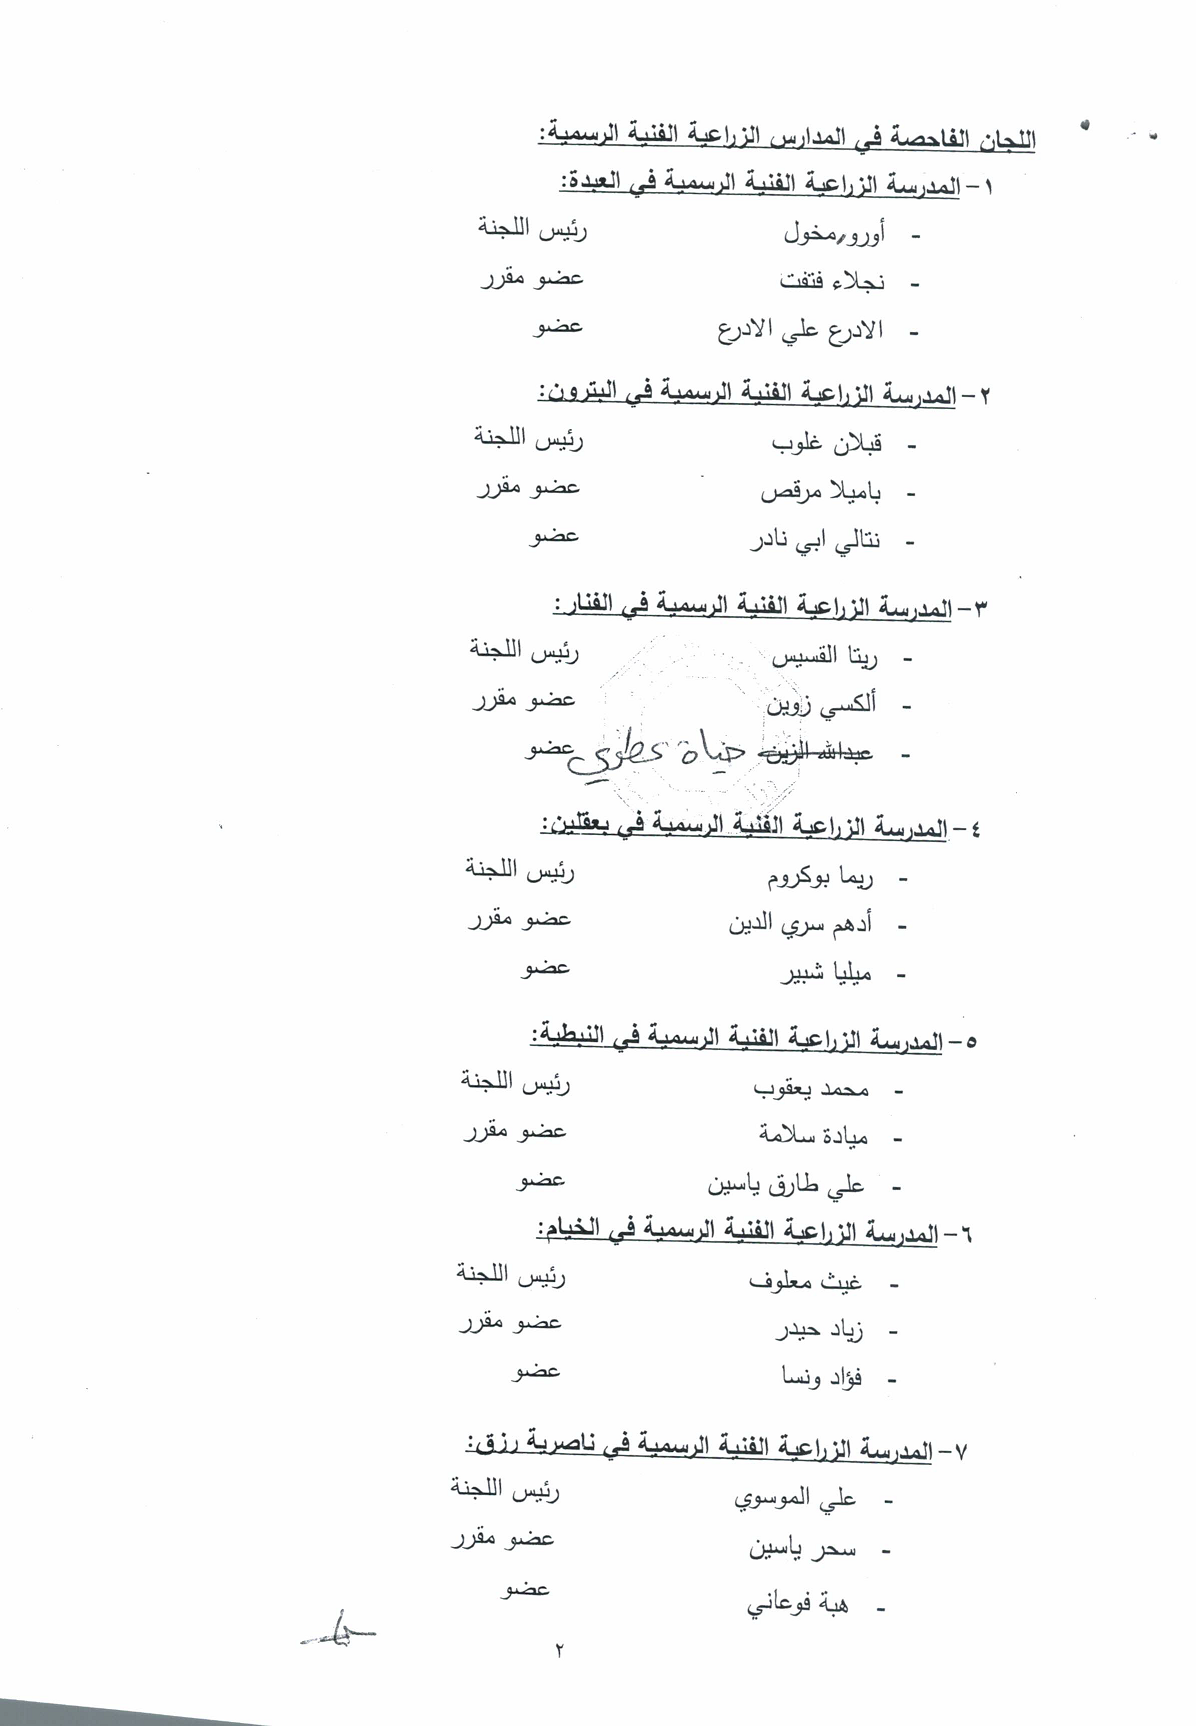 اللجان الفاحصة في المدارس الزراعية الفنية الرسمية:
١- المدرسة الزراعية الفنية الرسمية في العبدة:
- أورور مخول رئيس اللجنة
- نجلاء فتفت عضو مقرر
- الادرع علي الادرع عضو
٢- المدرسة الزراعية الفنية الرسمية في البترون:
- قبلان غلوب رئيس اللجنة
- باميلا مرقص عضو مقرر
- نتالي ابي نادر عضو
٣- المدرسة الزراعية الفنية الرسمية في الفنار:
- ريتا القسيس رئيس اللجنة
- ألكسي زوين عضو مقرر
- عبدالله الزين حياة عطوي عضو
٤- المدرسة الزراعية الفنية الرسمية في بعقلين:
- ريما بوكروم رئيس اللجنة
- أدهم سري الدين عضو مقرر
- ميليا شبير عضو
٥- المدرسة الزراعية الفنية الرسمية في النبطية:
- محمد يعقوب رئيس اللجنة
- ميادة سلامة عضو مقرر
- علي طارق ياسين عضو
٦- المدرسة الزراعية الفنية الرسمية في الخيام:
- غيث معلوف رئيس اللجنة
- زياد حيدر عضو مقرر
- فؤاد ونسا عضو
٧- المدرسة الزراعية الفنية الرسمية في ناصرية رزق:
- علي الموسوي رئيس اللجنة
- سحر ياسين عضو مقرر
- هبة فوعاني عضو
٢